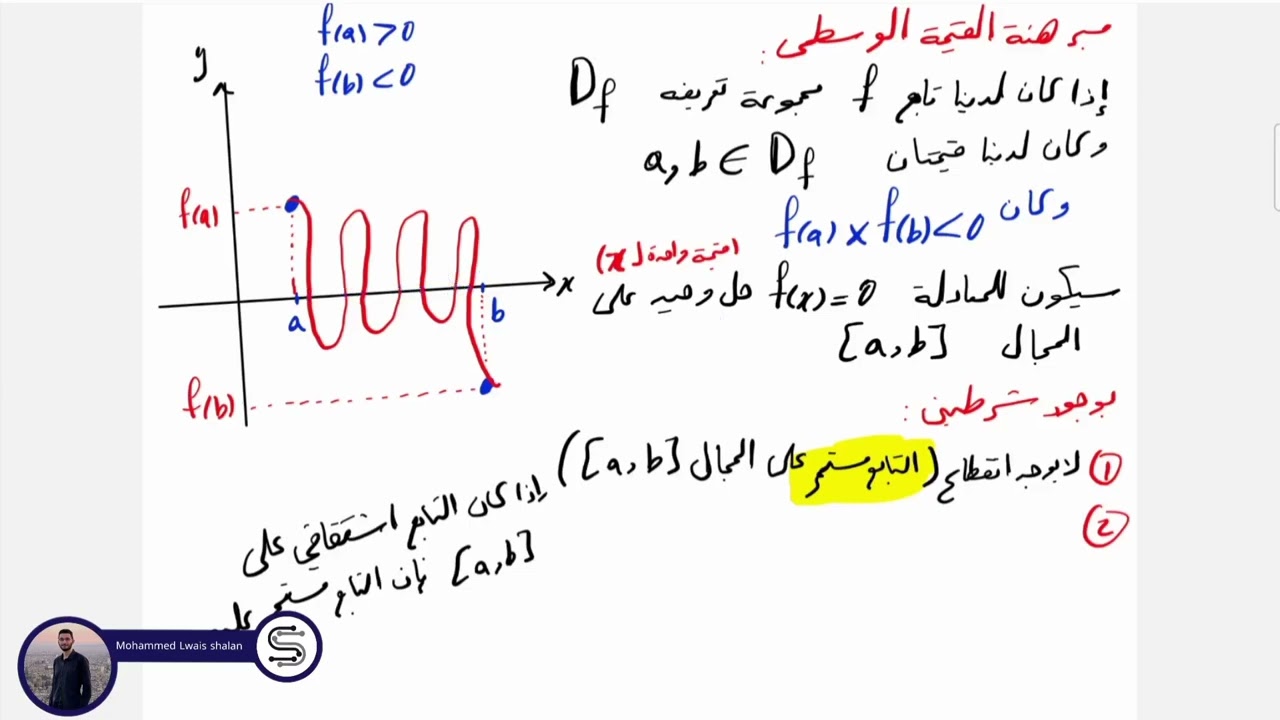 مبرهنة القيمة الوسطى :
إذا كان لدينا تابع f مجموعة تعريفه Df
وكان لدينا قيمتان a, b ∈ Df
وكان f(a) × f(b) < 0
(قيمة واحدة لـ x)
سيكون للمعادلة f(x) = 0 حل وحيد على
المجال [a, b]
بوجود شرطين :
① لا يوجد انقطاع (التابع مستمر على المجال [a, b])
إذا كان التابع اشتقاقي على
[a, b] فإن التابع مستمر
②
f(a) > 0
f(b) < 0
y
f(a)
x
a
b
f(b)
Mohammed Lwais shalan